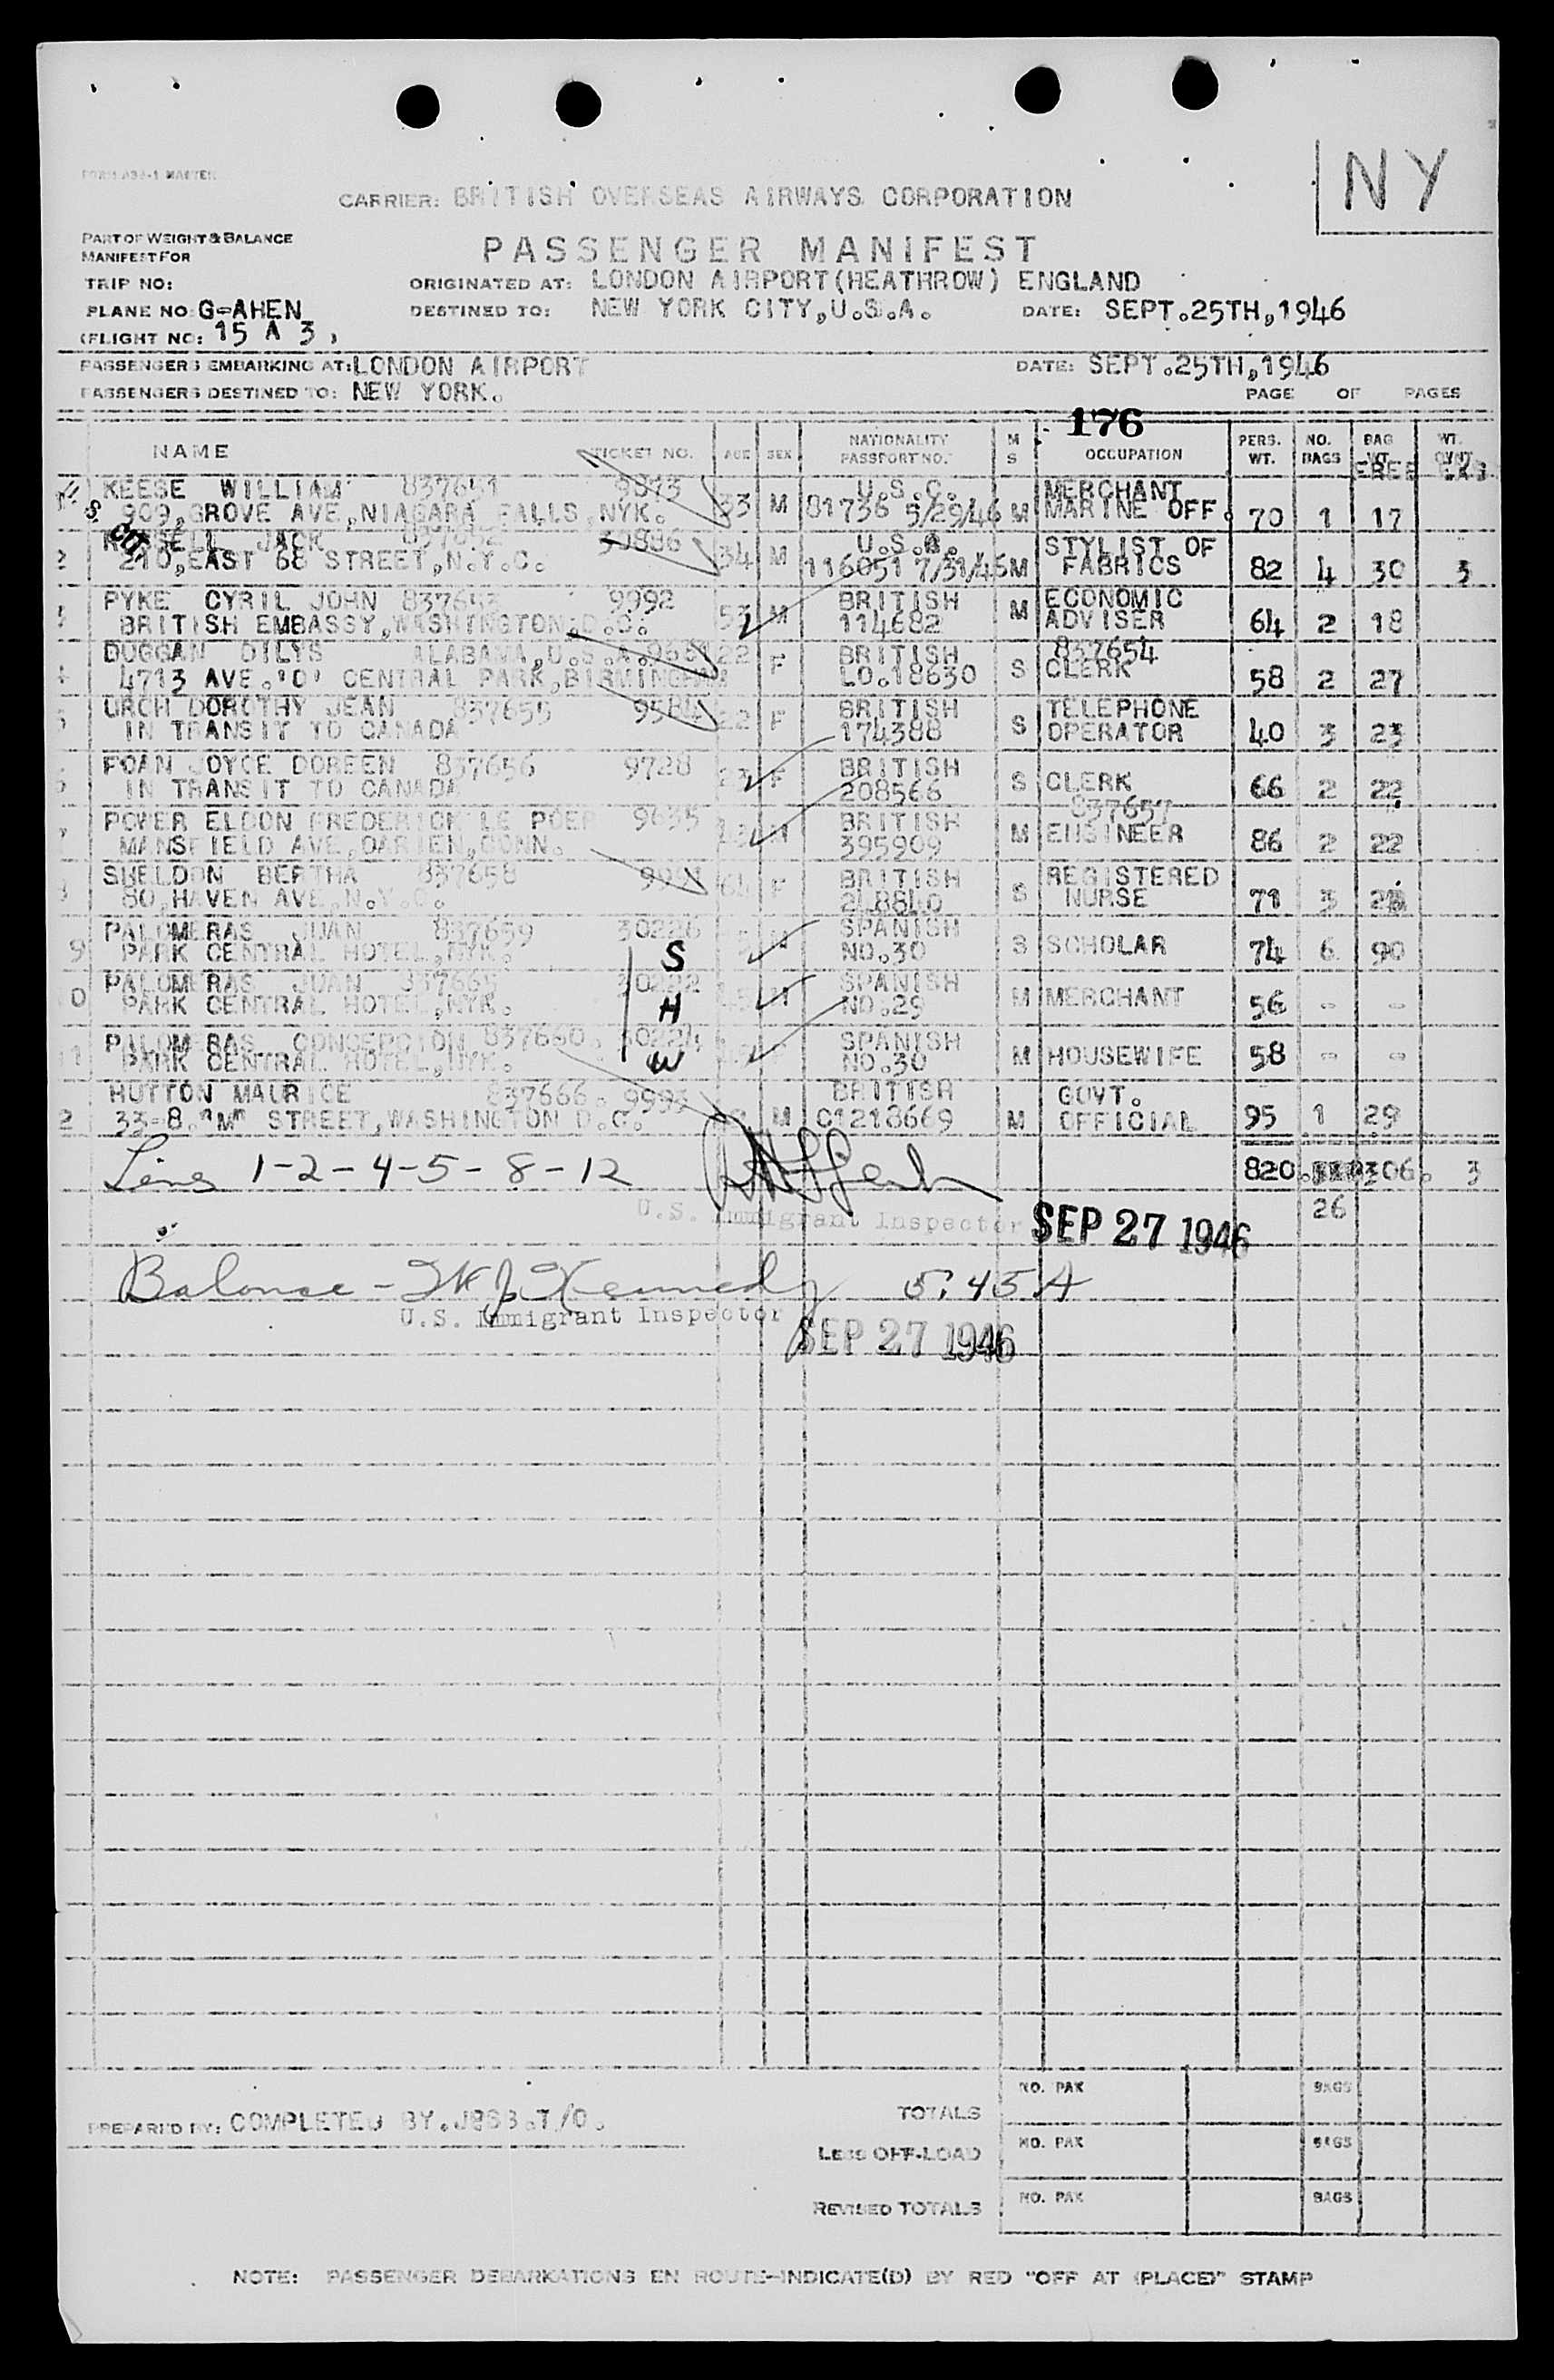 NY
CARRIER: BRITISH OVERSEAS AIRWAYS CORPORATION
PART OF WEIGHT & BALANCE
MANIFEST FOR
PASSENGER MANIFEST
TRIP NO:
ORIGINATED AT: LONDON AIRPORT(HEATHROW) ENGLAND
PLANE NO: G-AHEN
DESTINED TO: NEW YORK CITY,U.S.A.
DATE: SEPT.25TH,1946
(FLIGHT NO: 15 A 3,
PASSENGERS EMBARKING AT: LONDON AIRPORT
DATE: SEPT.25TH,1946
PASSENGERS DESTINED TO: NEW YORK.
PAGE OF PAGES
176
NAME TICKET NO. AGE SEX NATIONALITY PASSPORT NO. M S OCCUPATION PERS. WT. NO. BAGS BAG WT. WT.
FREE
KEESE WILLIAM 837651 9873 33 M U.S.C. M MERCHANT
909,GROVE AVE,NIAGARA FALLS,NYK. 81736 5/29/46 MARINE OFF. 70 1 17
JACK 34 M STYLIST OF
2 210,EAST 68 STREET,N.Y.C. 116051 7/31/46 M FABRICS 82 4 30 3
PYKE CYRIL JOHN 837653 9992 53 M BRITISH M ECONOMIC
BRITISH EMBASSY,WASHINGTON,D.C. 114682 ADVISER 64 2 18
DUGGAN DILYS ALABAMA,U.S.A. 22 F BRITISH 837654
4713 AVE.'D' CENTRAL PARK,BIRMINGHAM LO.18630 S CLERK 58 2 27
URCH DOROTHY JEAN 837655 9584 22 F BRITISH S TELEPHONE
IN TRANSIT TO CANADA 174388 OPERATOR 40 3 23
FOAN JOYCE DOREEN 837656 9728 F BRITISH S CLERK
IN TRANSIT TO CANADA 208566 66 2 22
837657
POWER ELDON FREDERICK LE POER 9635 M BRITISH M ENGINEER
MANSFIELD AVE,DARIEN,CONN. 395909 86 2 22
SHELDON BERTHA 837658 64 F BRITISH S REGISTERED
80,HAVEN AVE,N.Y.C. 248840 NURSE 71 3
PALOMERAS JUAN 837659 30226 M SPANISH S SCHOLAR
9 PARK CENTRAL HOTEL,NYK. S NO.30 74 6 90
PALOMERAS JUAN 30222 M SPANISH M MERCHANT
0 PARK CENTRAL HOTEL,NYK. H NO.29 56 - -
PALOMERAS CONCEPCION 837660. 30224 SPANISH M HOUSEWIFE
PARK CENTRAL HOTEL,NYK. W NO.30 58 - -
HUTTON MAURICE 837666. 9993 M BRITISH M GOVT.
2 33-8."M" STREET,WASHINGTON D.C. C1213669 OFFICIAL 95 1 29
Lines 1-2-4-5-8-12
820. 306. 3
U.S. Immigrant Inspector SEP 27 1946
26
Balance - Kennedy 5:45 A
U.S. Immigrant Inspector SEP 27 1946
PREPARED BY: COMPLETED BY.
TOTALS NO. PAX BAGS
LESS OFF-LOAD NO. PAX BAGS
REVISED TOTALS NO. PAX BAGS
NOTE: PASSENGER DEBARKATIONS EN ROUTE-INDICATE(D) BY RED "OFF AT (PLACE)" STAMP